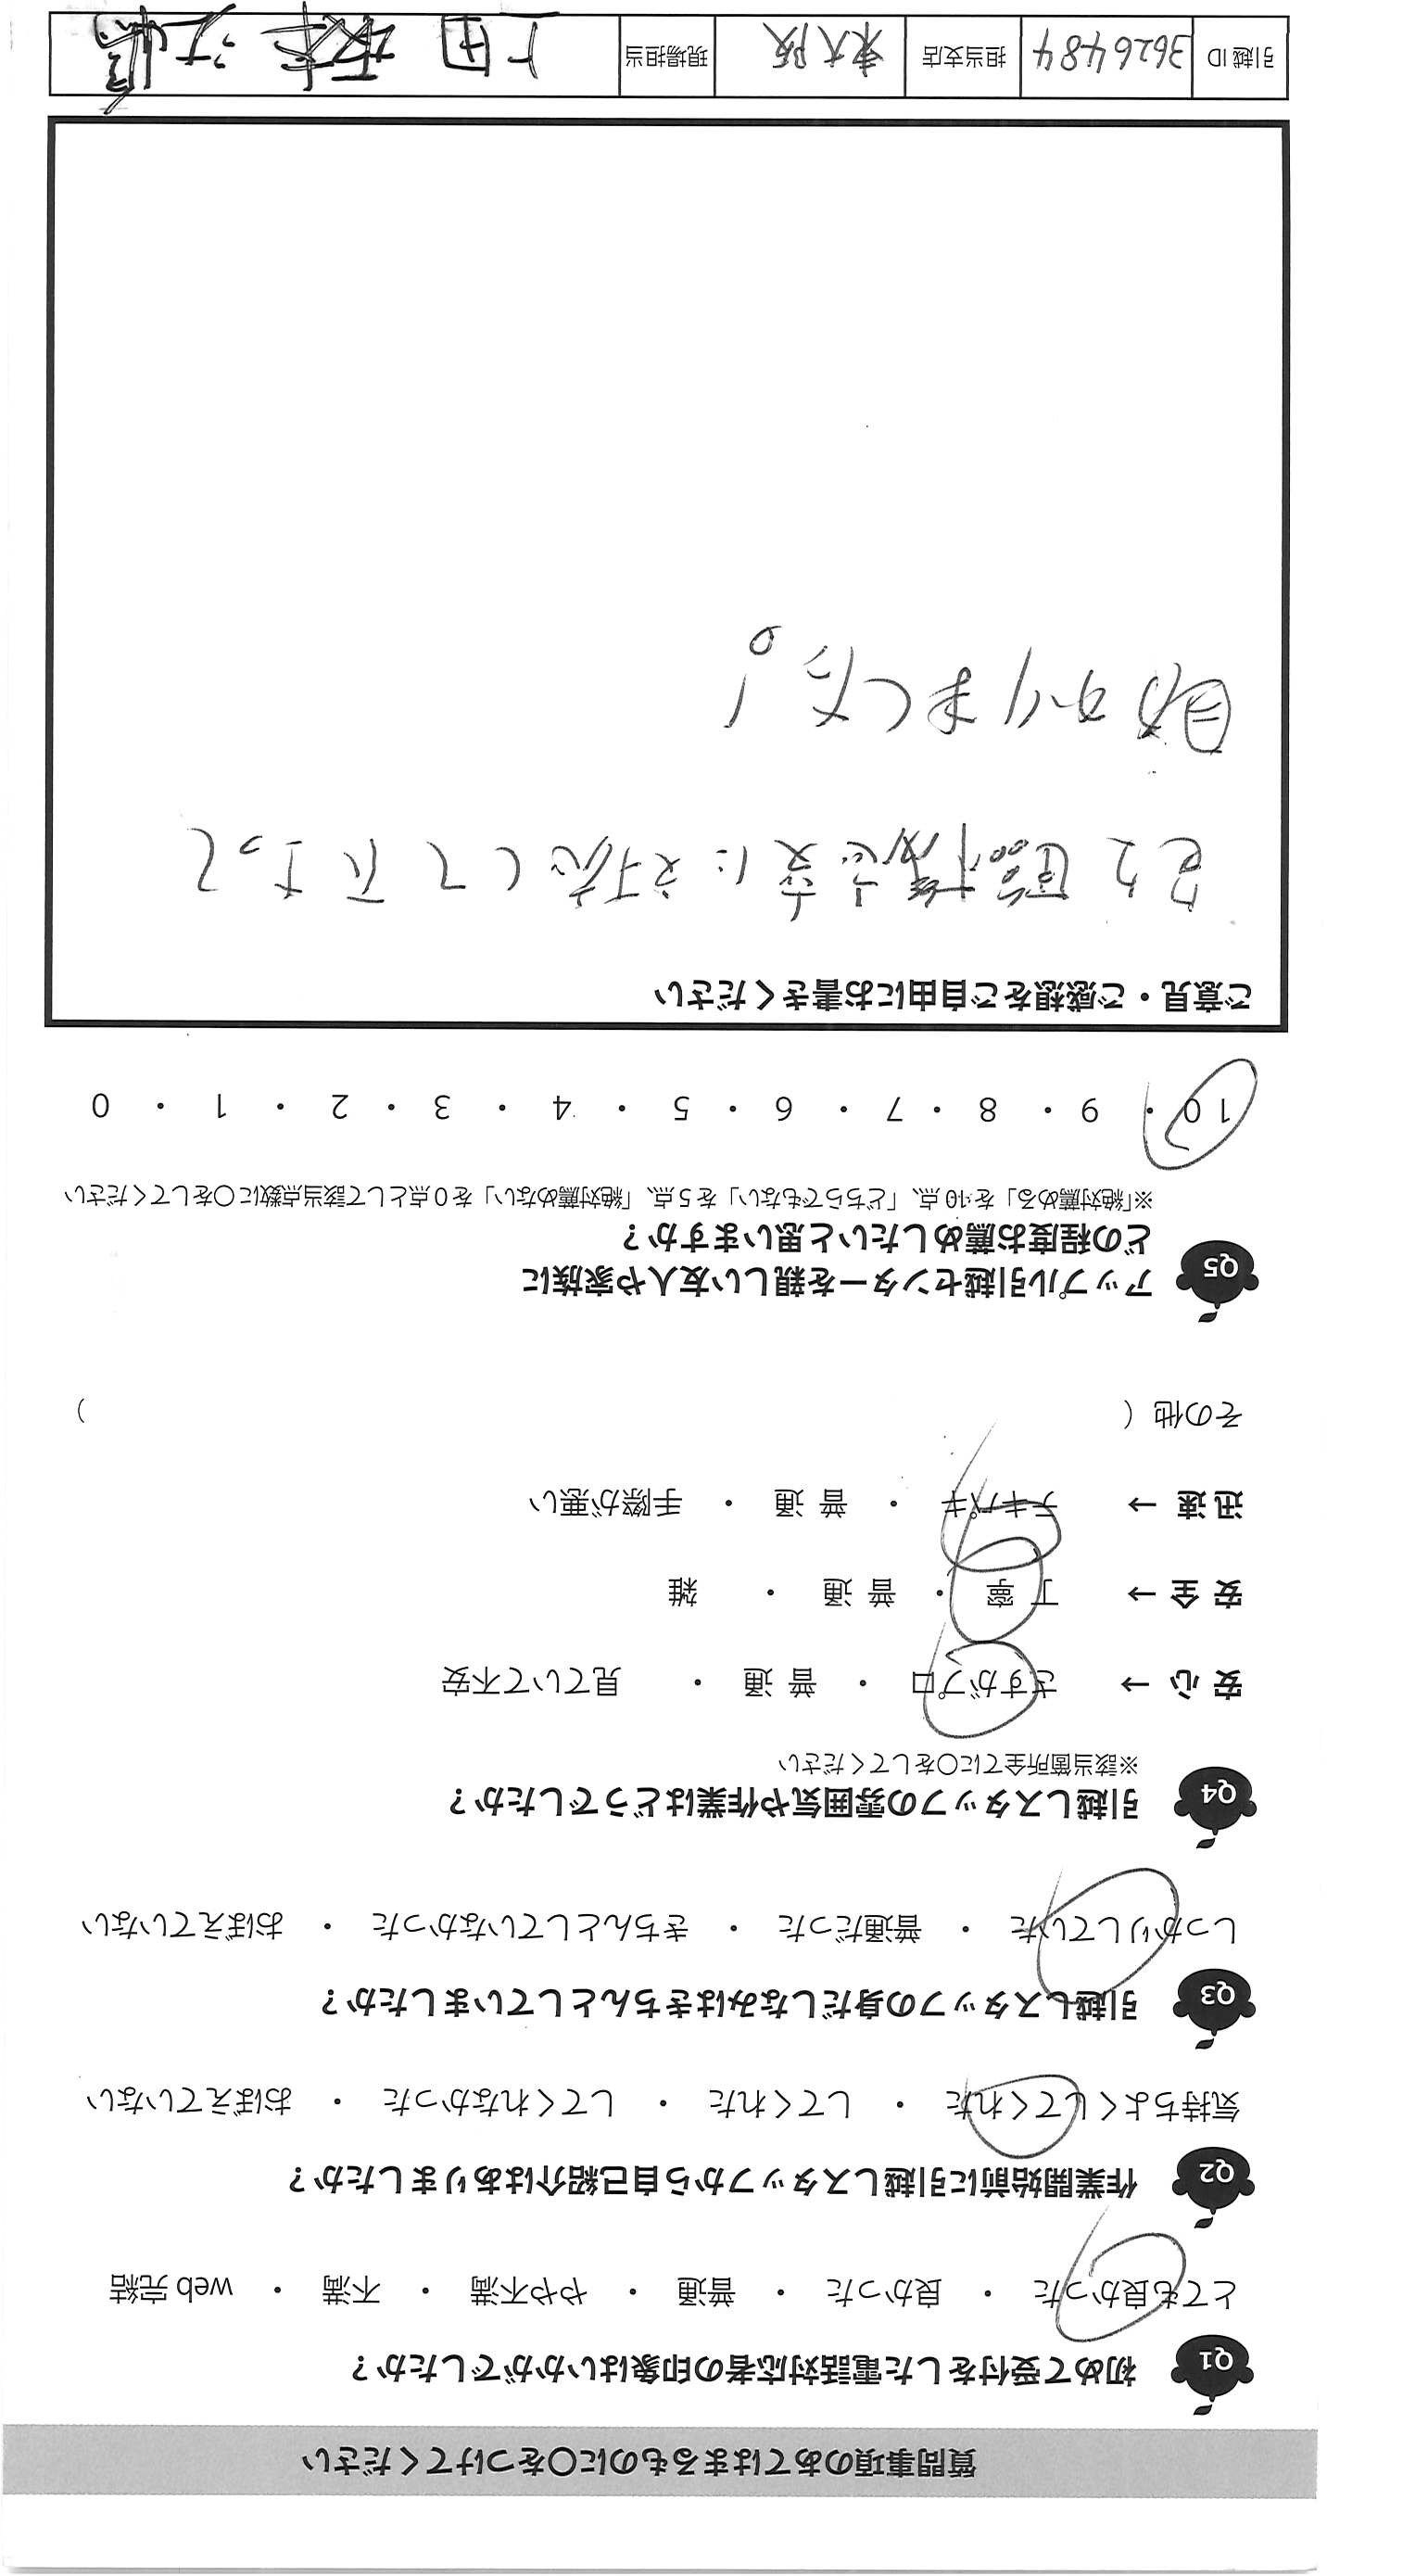 質問事項のあてはまるものに〇をつけてください
Q1 初めて受付をした電話対応者の印象はいかがでしたか？
とても良かった ・ 良かった ・ 普通 ・ やや不満 ・ 不満 ・ web 完結
Q2 作業開始前に引越しスタッフから自己紹介はありましたか？
気持ちよくしてくれた ・ してくれた ・ してくれなかった ・ おぼえていない
Q3 引越しスタッフの身だしなみはきちんとしていましたか？
しっかりしていた ・ 普通だった ・ きちんとしていなかった ・ おぼえていない
Q4 引越しスタッフの雰囲気や作業はどうでしたか？
※該当箇所全てに〇をしてください
安 心 → さすがプロ ・ 普 通 ・ 見ていて不安
安 全 → 丁 寧 ・ 普 通 ・ 雑
迅 速 → テキパキ ・ 普 通 ・ 手際が悪い
その他（ ）
Q5 アップル引越センターを親しい友人や家族に
どの程度お薦めしたいと思いますか？
※「絶対薦める」を 10 点、「どちらでもない」を 5 点、「絶対薦めない」を 0 点として該当点数に〇をしてください
10 ・ 9 ・ 8 ・ 7 ・ 6 ・ 5 ・ 4 ・ 3 ・ 2 ・ 1 ・ 0
ご意見・ご感想をご自由にお書きください
色々臨機応変に対応して下さって
助かりました！。
引越 ID 3626484 担当支店 東大阪 現場担当 上田